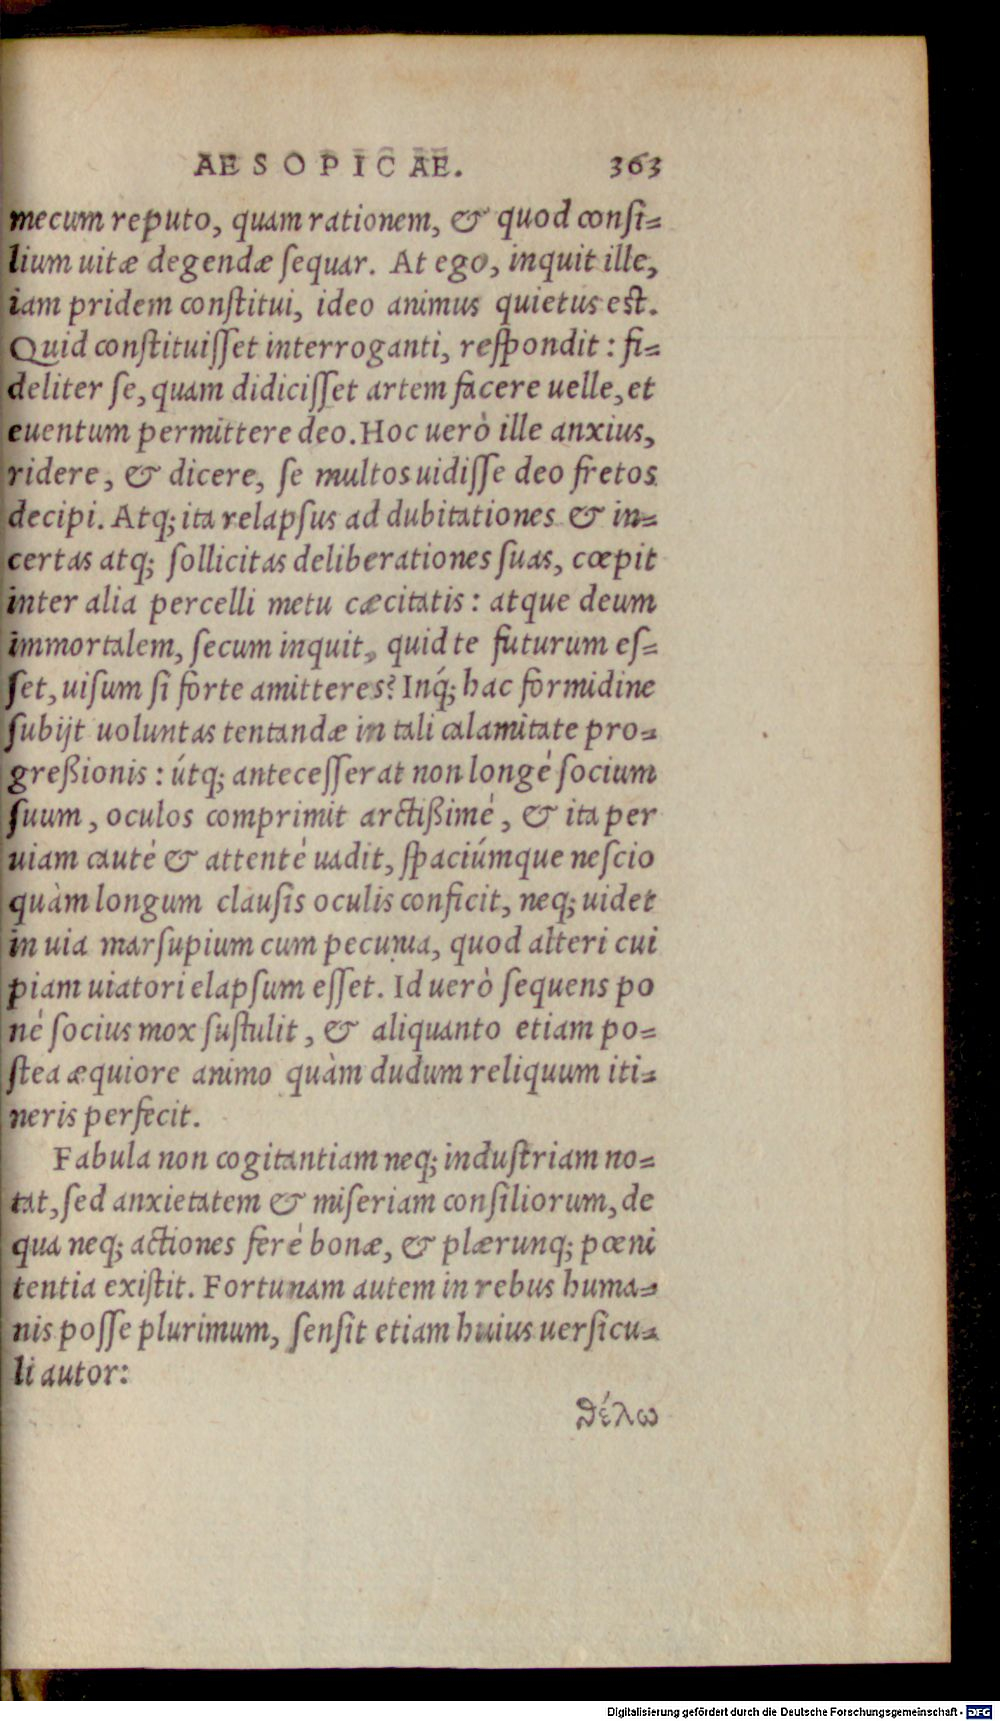 AESOPICAE. 363
mecum reputo, quam rationem, & quod consi=
lium uitæ degendæ sequar. At ego, inquit ille,
iam pridem constitui, ideo animus quietus est.
Quid constituisset interroganti, respondit: fi=
deliter se, quam didicisset artem facere uelle, et
euentum permittere deo. Hoc uerò ille anxius,
ridere, & dicere, se multos uidisse deo fretos
decipi. Atq; ita relapsus ad dubitationes & in=
certas atq; sollicitas deliberationes suas, cœpit
inter alia percelli metu cæcitatis: atque deum
immortalem, secum inquit, quid te futurum es=
set, uisum si forte amitteres? Inq́; hac formidine
subijt uoluntas tentandæ in tali calamitate pro=
greßionis: útq; antecesserat non longé socium
suum, oculos comprimit arctißimé, & ita per
uiam cauté & attenté uadit, spaciúmque nescio
quàm longum clausis oculis conficit, neq; uidet
in uia marsupium cum pecunia, quod alteri cui
piam uiatori elapsum esset. Id uerò sequens po
né socius mox sustulit, & aliquanto etiam po=
stea æquiore animo quàm dudum reliquum iti=
neris perfecit.
Fabula non cogitantiam neq; industriam no=
tat, sed anxietatem & miseriam consiliorum, de
qua neq; actiones feré bonæ, & plærunq; pœni
tentia existit. Fortunam autem in rebus huma=
nis posse plurimum, sensit etiam huius uersicu=
li autor:
θέλω
Digitalisierung gefördert durch die Deutsche Forschungsgemeinschaft - DFG